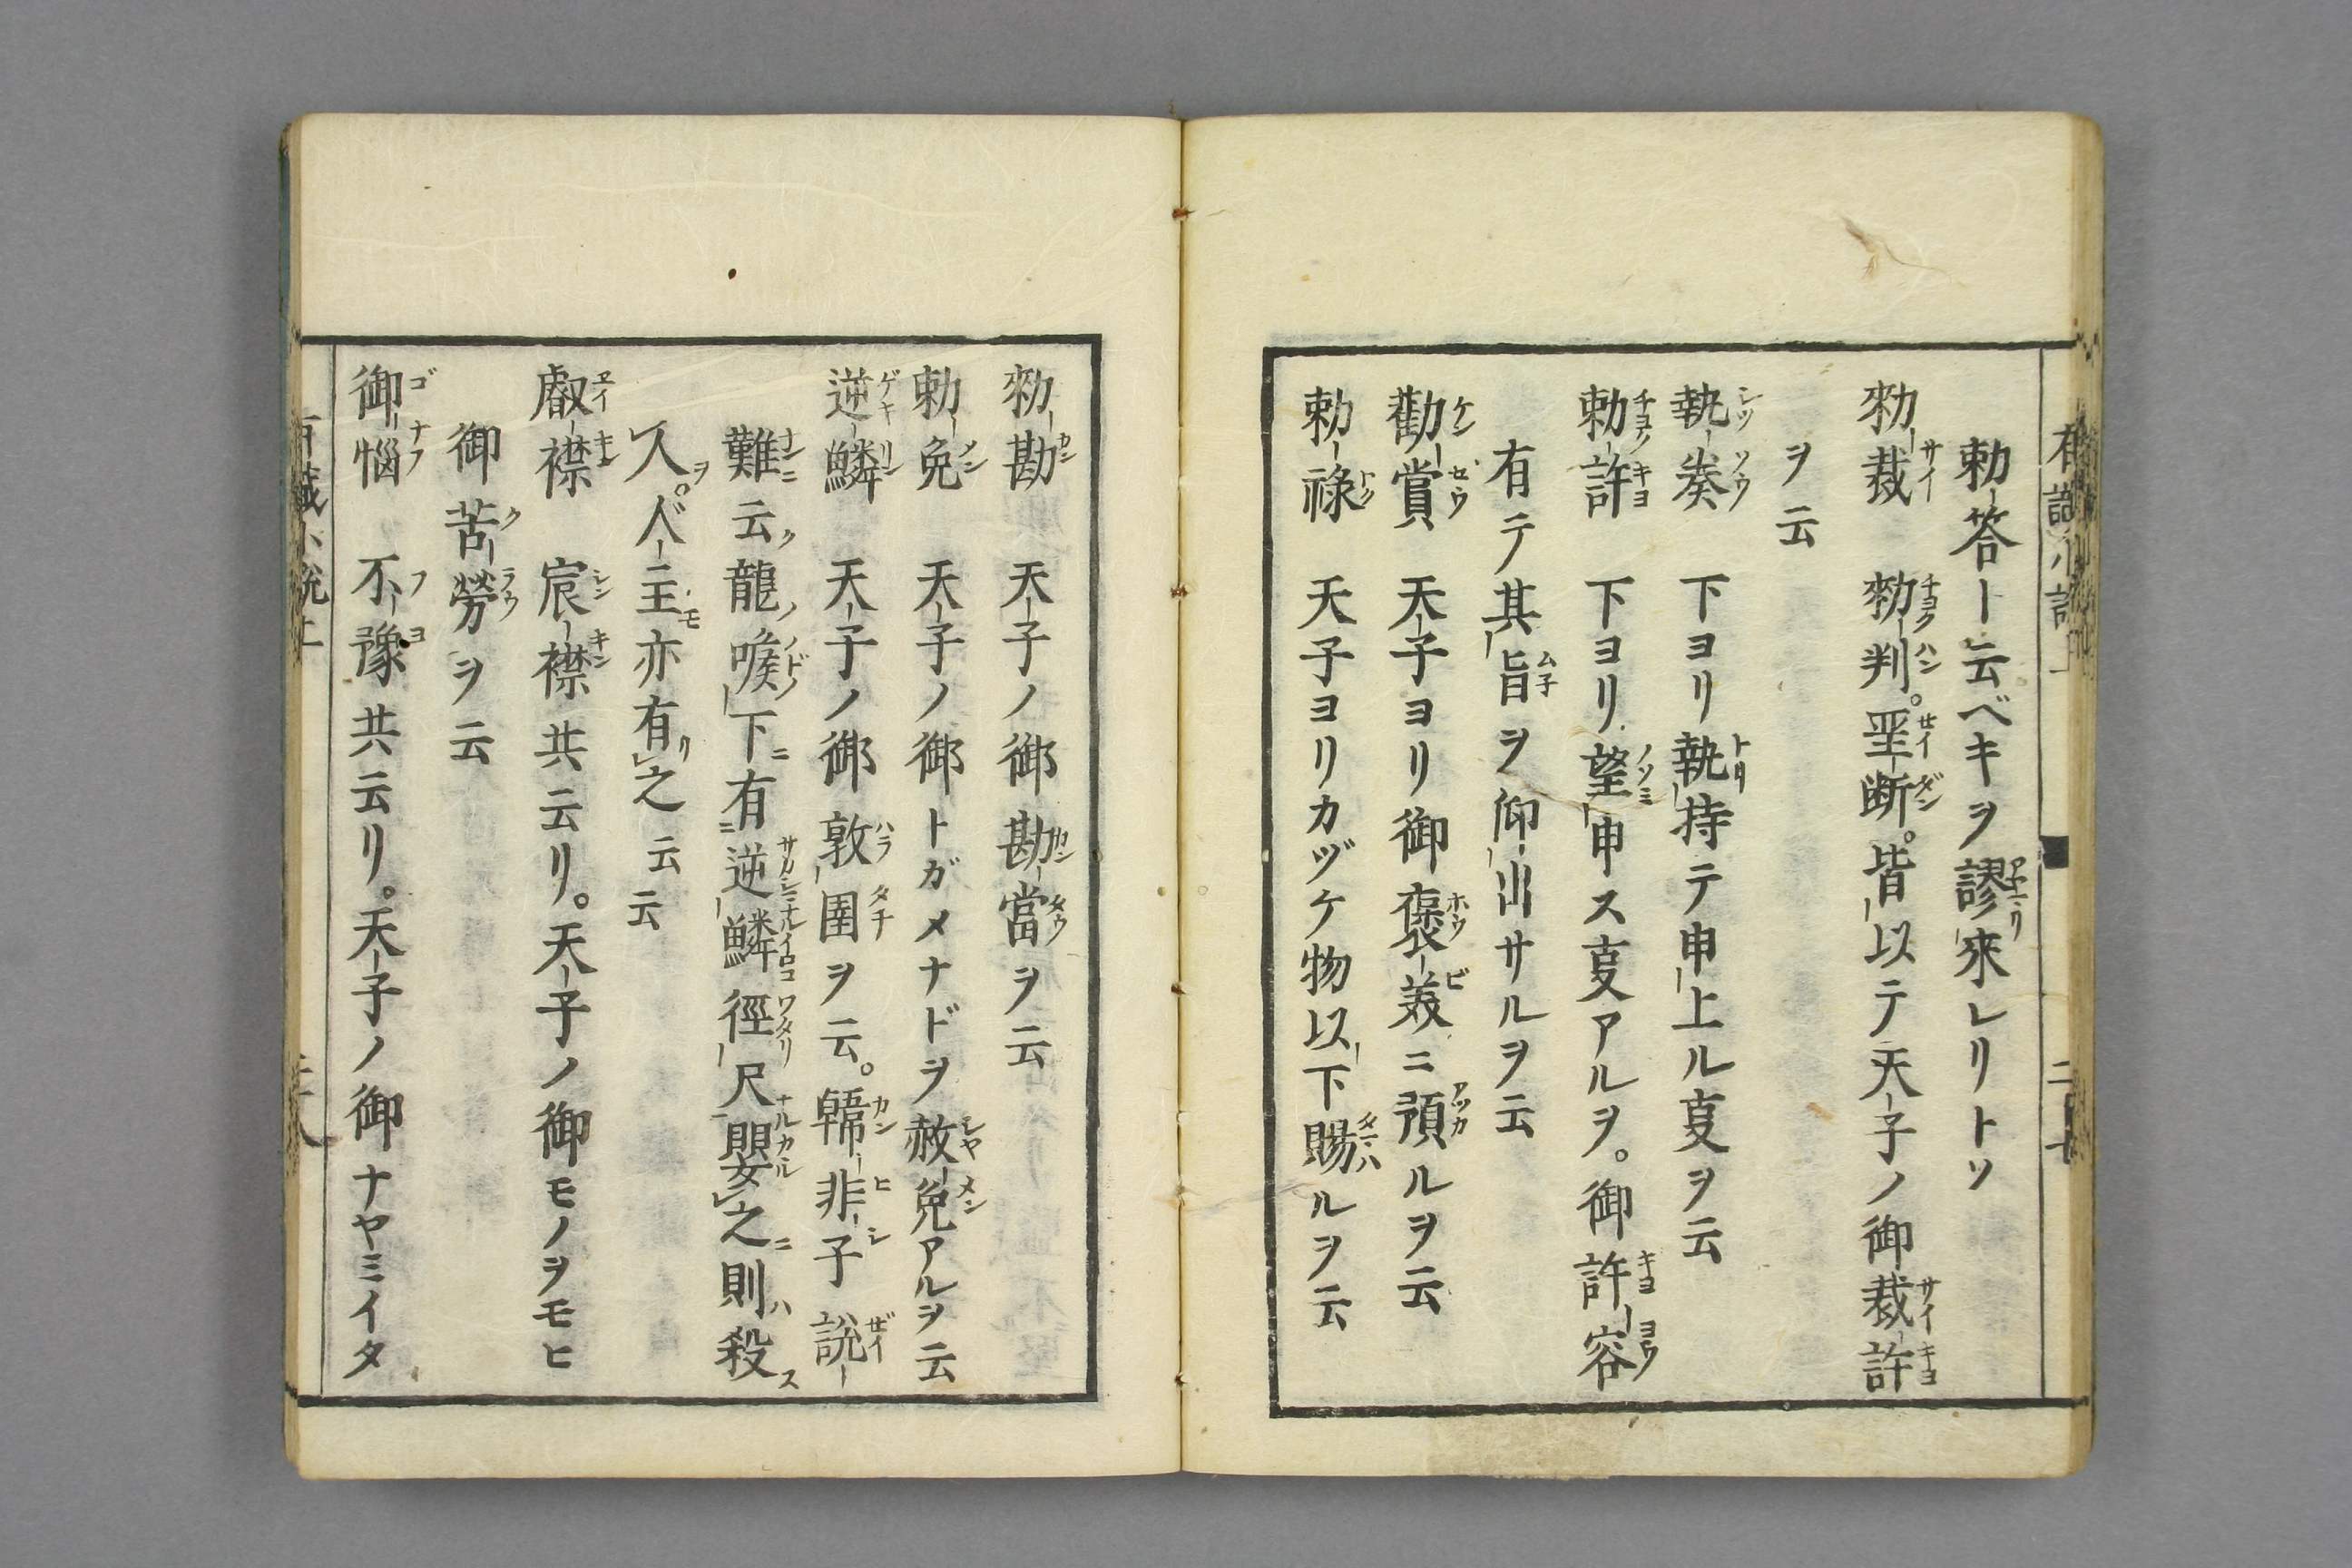 勅答ト云ベキヲ謬來レリトソ
勅裁　勅判。聖断。皆以テ天子ノ御裁許
ヲ云
執奏　下ヨリ執持テ申上ル叓ヲ云
勅許　下ヨリ望申ス叓アルヲ。御許容
有テ其旨ヲ仰出サルヲ云
勸賞　天子ヨリ御褒美ニ預ルヲ云
勅祿　天子ヨリカヅケ物以下賜ルヲ云
勅勘　天子ノ御勘當ヲ云
勅免　天子ノ御トガメナドヲ赦免アルヲ云
逆鱗　天子ノ御敦圉ヲ云。韓非子説
難云龍喉下有逆鱗徑尺嬰之則殺
人。人主亦有之云云
叡襟　宸襟共云リ。天子ノ御モノヲモヒ
御苦勞ヲ云
御惱　不豫共云リ。天子ノ御ナヤミイタ